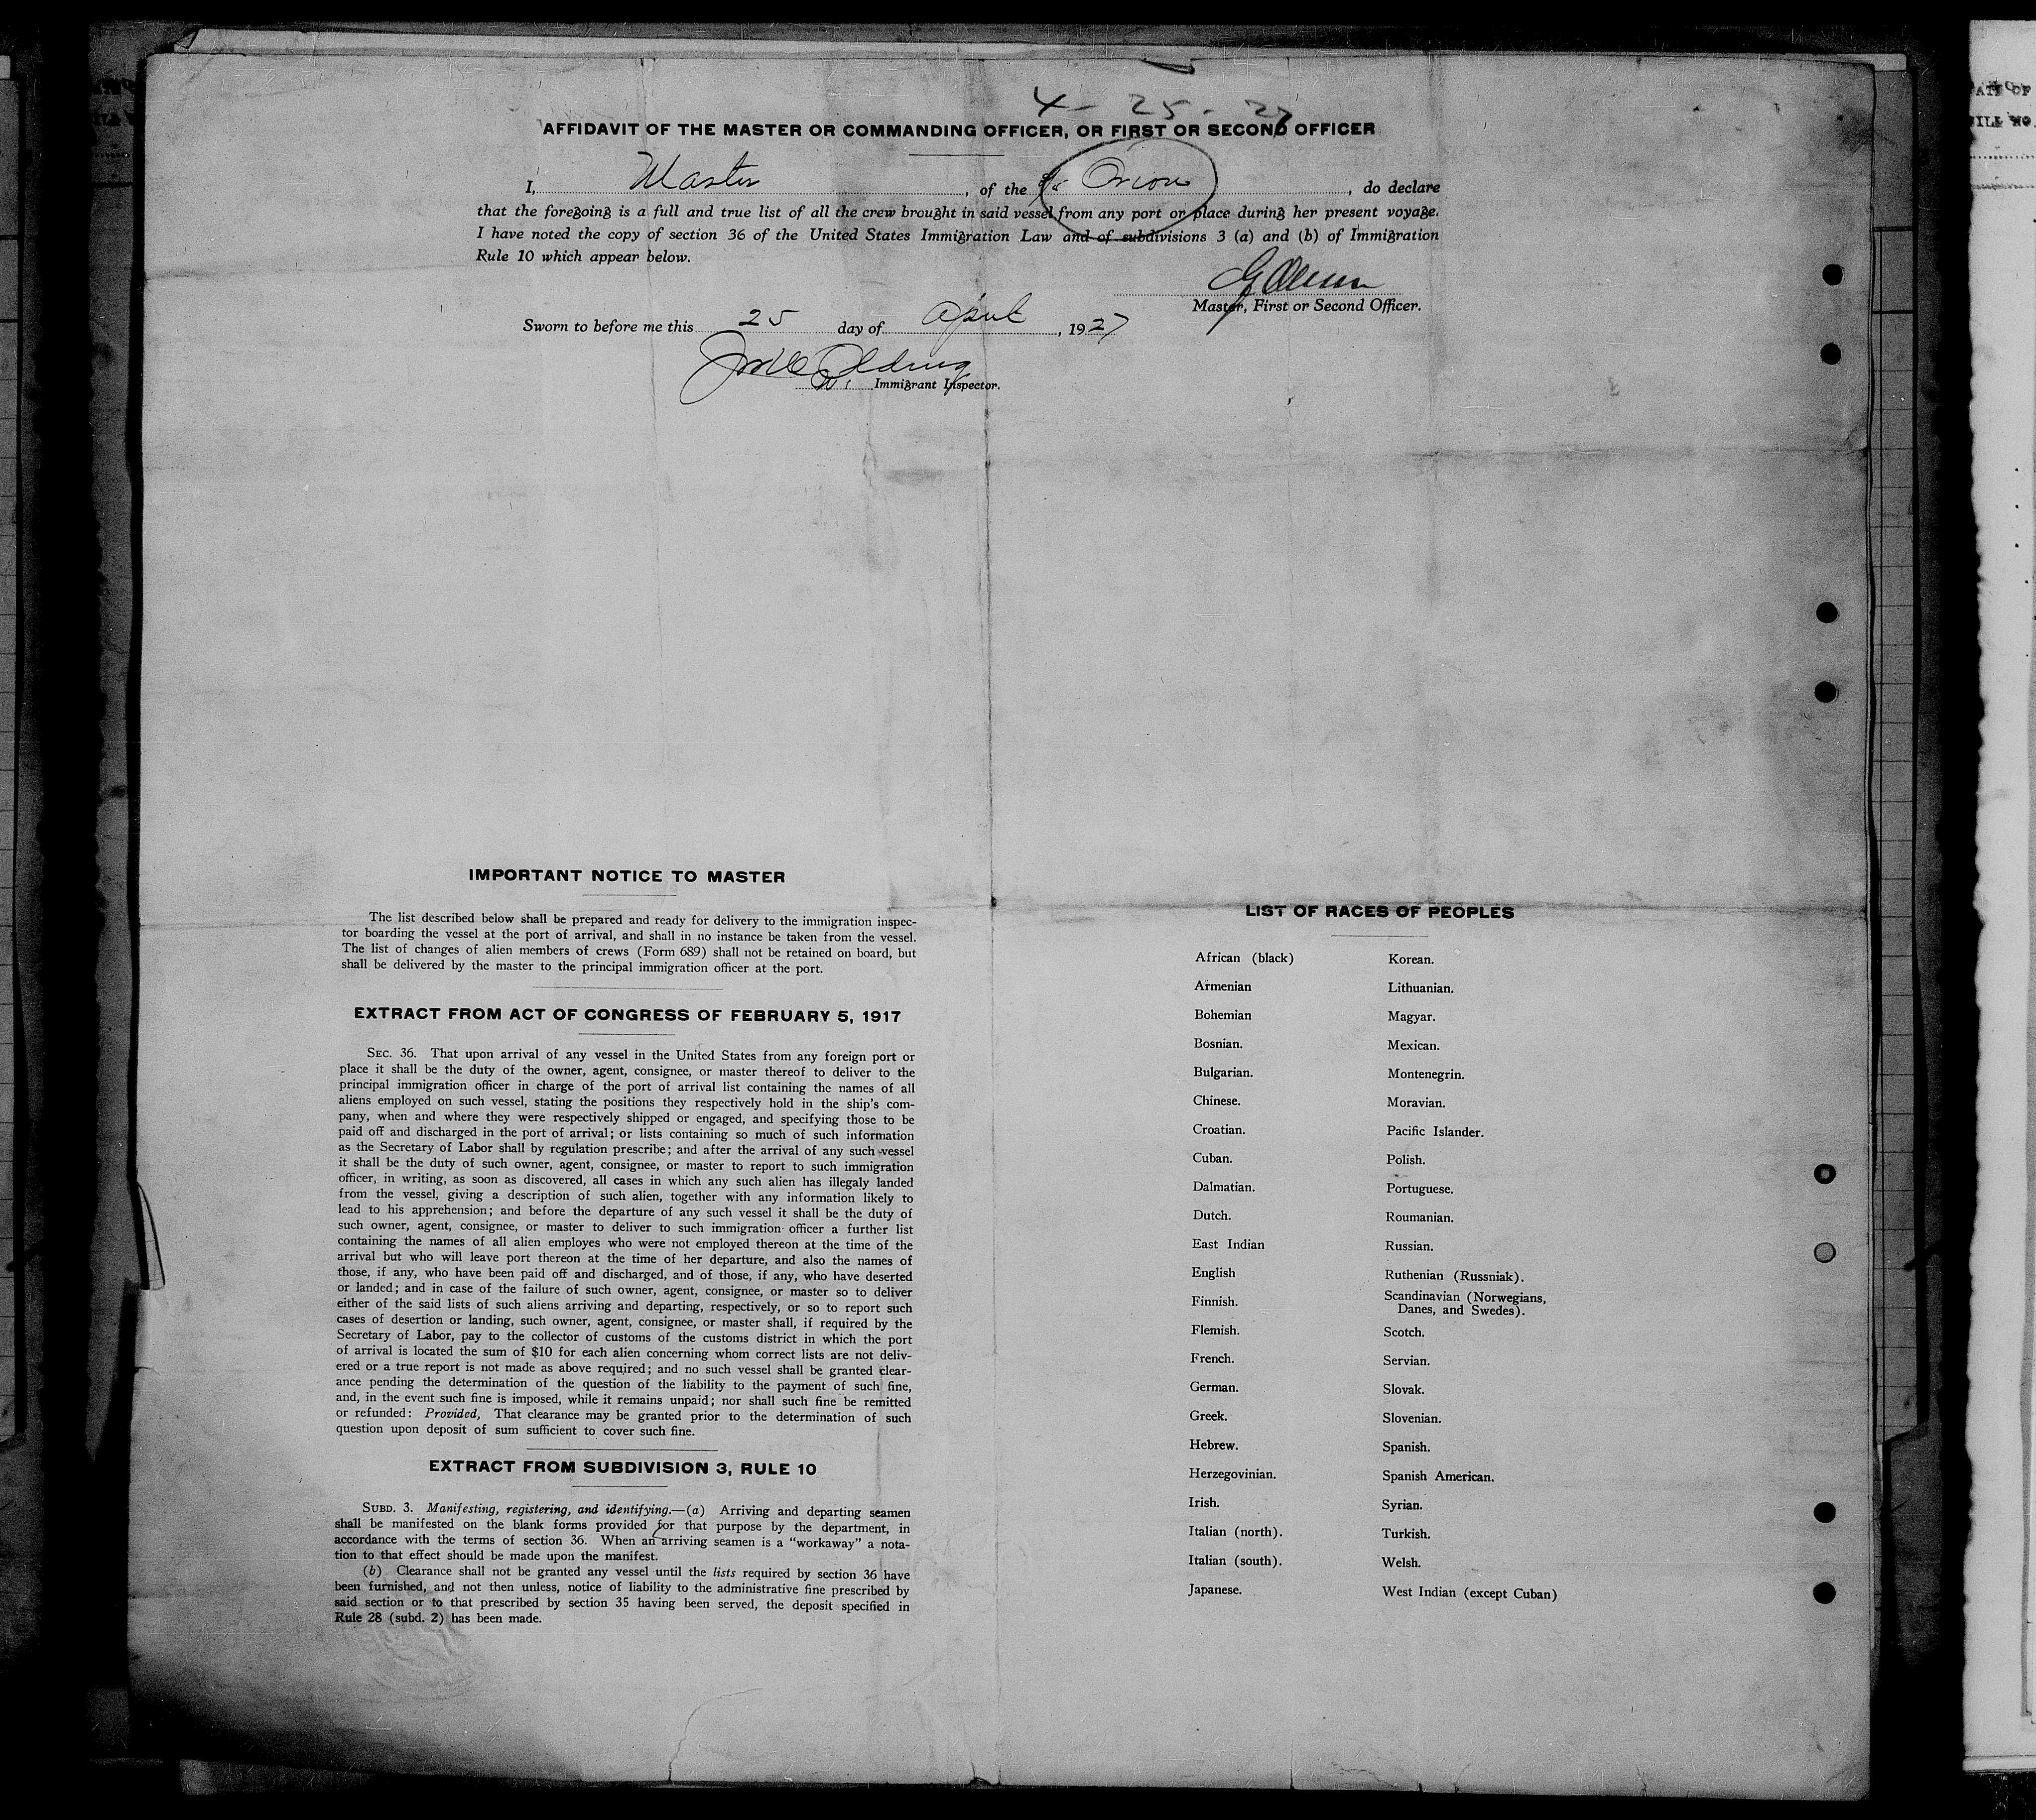 4 - 25 - 27
AFFIDAVIT OF THE MASTER OR COMMANDING OFFICER, OR FIRST OR SECOND OFFICER
I, Master, of the Orion, do declare
that the foregoing is a full and true list of all the crew brought in said vessel from any port or place during her present voyage.
I have noted the copy of section 36 of the United States Immigration Law and of subdivisions 3 (a) and (b) of Immigration
Rule 10 which appear below.
Master, First or Second Officer.
Sworn to before me this 25 day of April, 1927
Immigrant Inspector.
IMPORTANT NOTICE TO MASTER
The list described below shall be prepared and ready for delivery to the immigration inspec-
tor boarding the vessel at the port of arrival, and shall in no instance be taken from the vessel.
The list of changes of alien members of crews (Form 689) shall not be retained on board, but
shall be delivered by the master to the principal immigration officer at the port.
EXTRACT FROM ACT OF CONGRESS OF FEBRUARY 5, 1917
SEC. 36. That upon arrival of any vessel in the United States from any foreign port or
place it shall be the duty of the owner, agent, consignee, or master thereof to deliver to the
principal immigration officer in charge of the port of arrival list containing the names of all
aliens employed on such vessel, stating the positions they respectively hold in the ship's com-
pany, when and where they were respectively shipped or engaged, and specifying those to be
paid off and discharged in the port of arrival; or lists containing so much of such information
as the Secretary of Labor shall by regulation prescribe; and after the arrival of any such vessel
it shall be the duty of such owner, agent, consignee, or master to report to such immigration
officer, in writing, as soon as discovered, all cases in which any such alien has illegaly landed
from the vessel, giving a description of such alien, together with any information likely to
lead to his apprehension; and before the departure of any such vessel it shall be the duty of
such owner, agent, consignee, or master to deliver to such immigration officer a further list
containing the names of all alien employes who were not employed thereon at the time of the
arrival but who will leave port thereon at the time of her departure, and also the names of
those, if any, who have been paid off and discharged, and of those, if any, who have deserted
or landed; and in case of the failure of such owner, agent, consignee, or master so to deliver
either of the said lists of such aliens arriving and departing, respectively, or so to report such
cases of desertion or landing, such owner, agent, consignee, or master shall, if required by the
Secretary of Labor, pay to the collector of customs of the customs district in which the port
of arrival is located the sum of $10 for each alien concerning whom correct lists are not deliv-
ered or a true report is not made as above required; and no such vessel shall be granted clear-
ance pending the determination of the question of the liability to the payment of such fine,
and, in the event such fine is imposed, while it remains unpaid; nor shall such fine be remitted
or refunded: Provided, That clearance may be granted prior to the determination of such
question upon deposit of sum sufficient to cover such fine.
EXTRACT FROM SUBDIVISION 3, RULE 10
SUBD. 3. Manifesting, registering, and identifying.—(a) Arriving and departing seamen
shall be manifested on the blank forms provided for that purpose by the department, in
accordance with the terms of section 36. When an arriving seamen is a "workaway" a nota-
tion to that effect should be made upon the manifest.
(b) Clearance shall not be granted any vessel until the lists required by section 36 have
been furnished, and not then unless, notice of liability to the administrative fine prescribed by
said section or to that prescribed by section 35 having been served, the deposit specified in
Rule 28 (subd. 2) has been made.
LIST OF RACES OF PEOPLES
African (black)
Armenian
Bohemian
Bosnian.
Bulgarian.
Chinese.
Croatian.
Cuban.
Dalmatian.
Dutch.
East Indian
English
Finnish.
Flemish.
French.
German.
Greek.
Hebrew.
Herzegovinian.
Irish.
Italian (north).
Italian (south).
Japanese.
Korean.
Lithuanian.
Magyar.
Mexican.
Montenegrin.
Moravian.
Pacific Islander.
Polish.
Portuguese.
Roumanian.
Russian.
Ruthenian (Russniak).
Scandinavian (Norwegians,
Danes, and Swedes).
Scotch.
Servian.
Slovak.
Slovenian.
Spanish.
Spanish American.
Syrian.
Turkish.
Welsh.
West Indian (except Cuban)